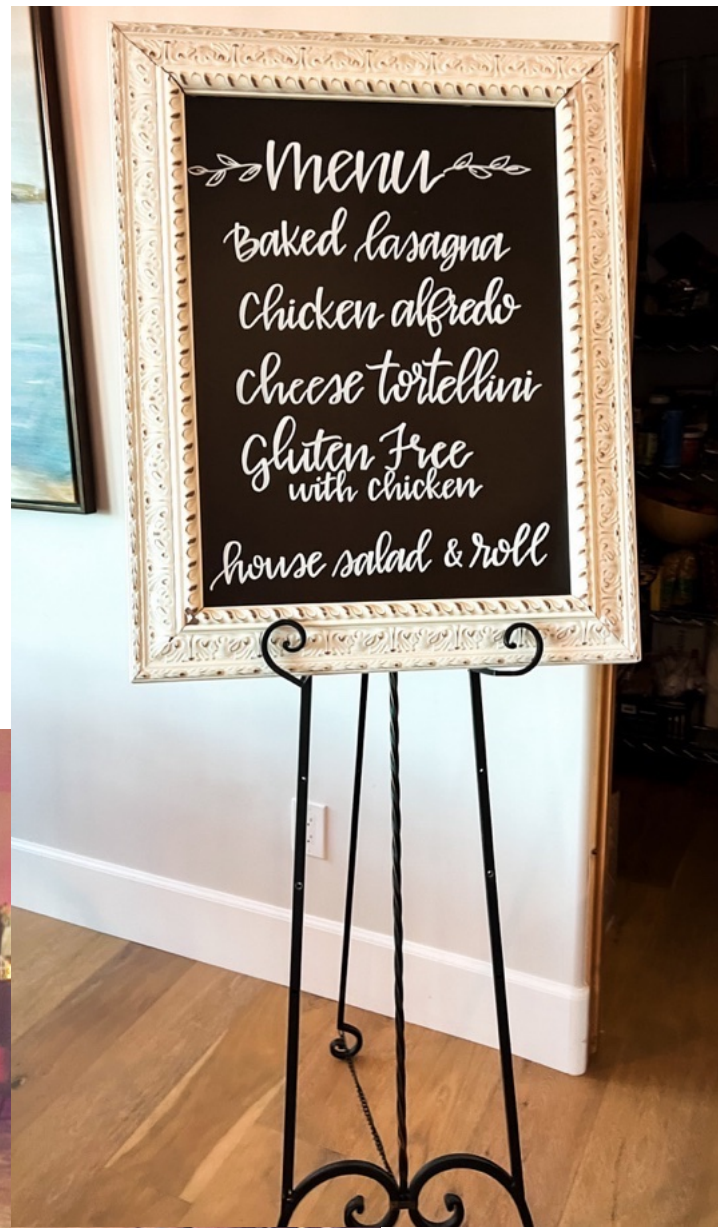 menu
Baked lasagna
Chicken alfredo
Cheese tortellini
Gluten Free
with chicken
house salad & roll